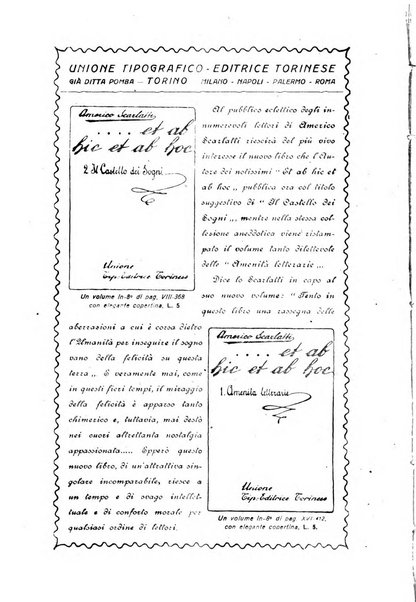 UNIONE TIPOGRAFICO - EDITRICE TORINESE
GIÀ DITTA POMBA - TORINO MILANO - NAPOLI - PALERMO - ROMA
Americo Scarlatti
.... et ab
hic et ab hoc
2. Il Castello dei Sogni
Unione
Tip. Editrice Torinese
Un volume in-8º di pag. VIII-368
con elegante copertina, L. 5
Al pubblico eclettico degli in-
numerevoli lettori di Americo
Scarlatti riescirà del più vivo
interesse il nuovo libro che l'Au-
tore dei notissimi " Et ab hic et
ab hoc „ pubblica ora col titolo
suggestivo di " Il Castello dei
Sogni „ ... mentre nella stessa col-
lesione aneddotica viene ristam-
pato il volume tanto dilettevole
delle " Amenità letterarie „ ...
Dice lo Scarlatti in capo al
suo nuovo volume: " Tento in
questo libro una rassegna delle
aberrazioni a cui è corsa dietro
l'Umanità per inseguire il sogno
vano della felicità su questa
terra „. E veramente mai, come
in questi fieri tempi, il miraggio
della felicità è apparso tanto
chimerico e, tuttavia, mai destò
nei cuori altrettanta nostalgia
appassionata.... Epperò questo
nuovo libro, di un'attrattiva sin-
golare incomparabile, riesce a
un tempo e di svago intellet-
tuale e di conforto morale per
qualsiasi ordine di lettori.
Americo Scarlatti
.... et ab
hic et ab hoc
1. Amenità letterarie
Unione
Tip. Editrice Torinese
Un volume in-8º di pag. XVI-412,
con elegante copertina, L. 5.